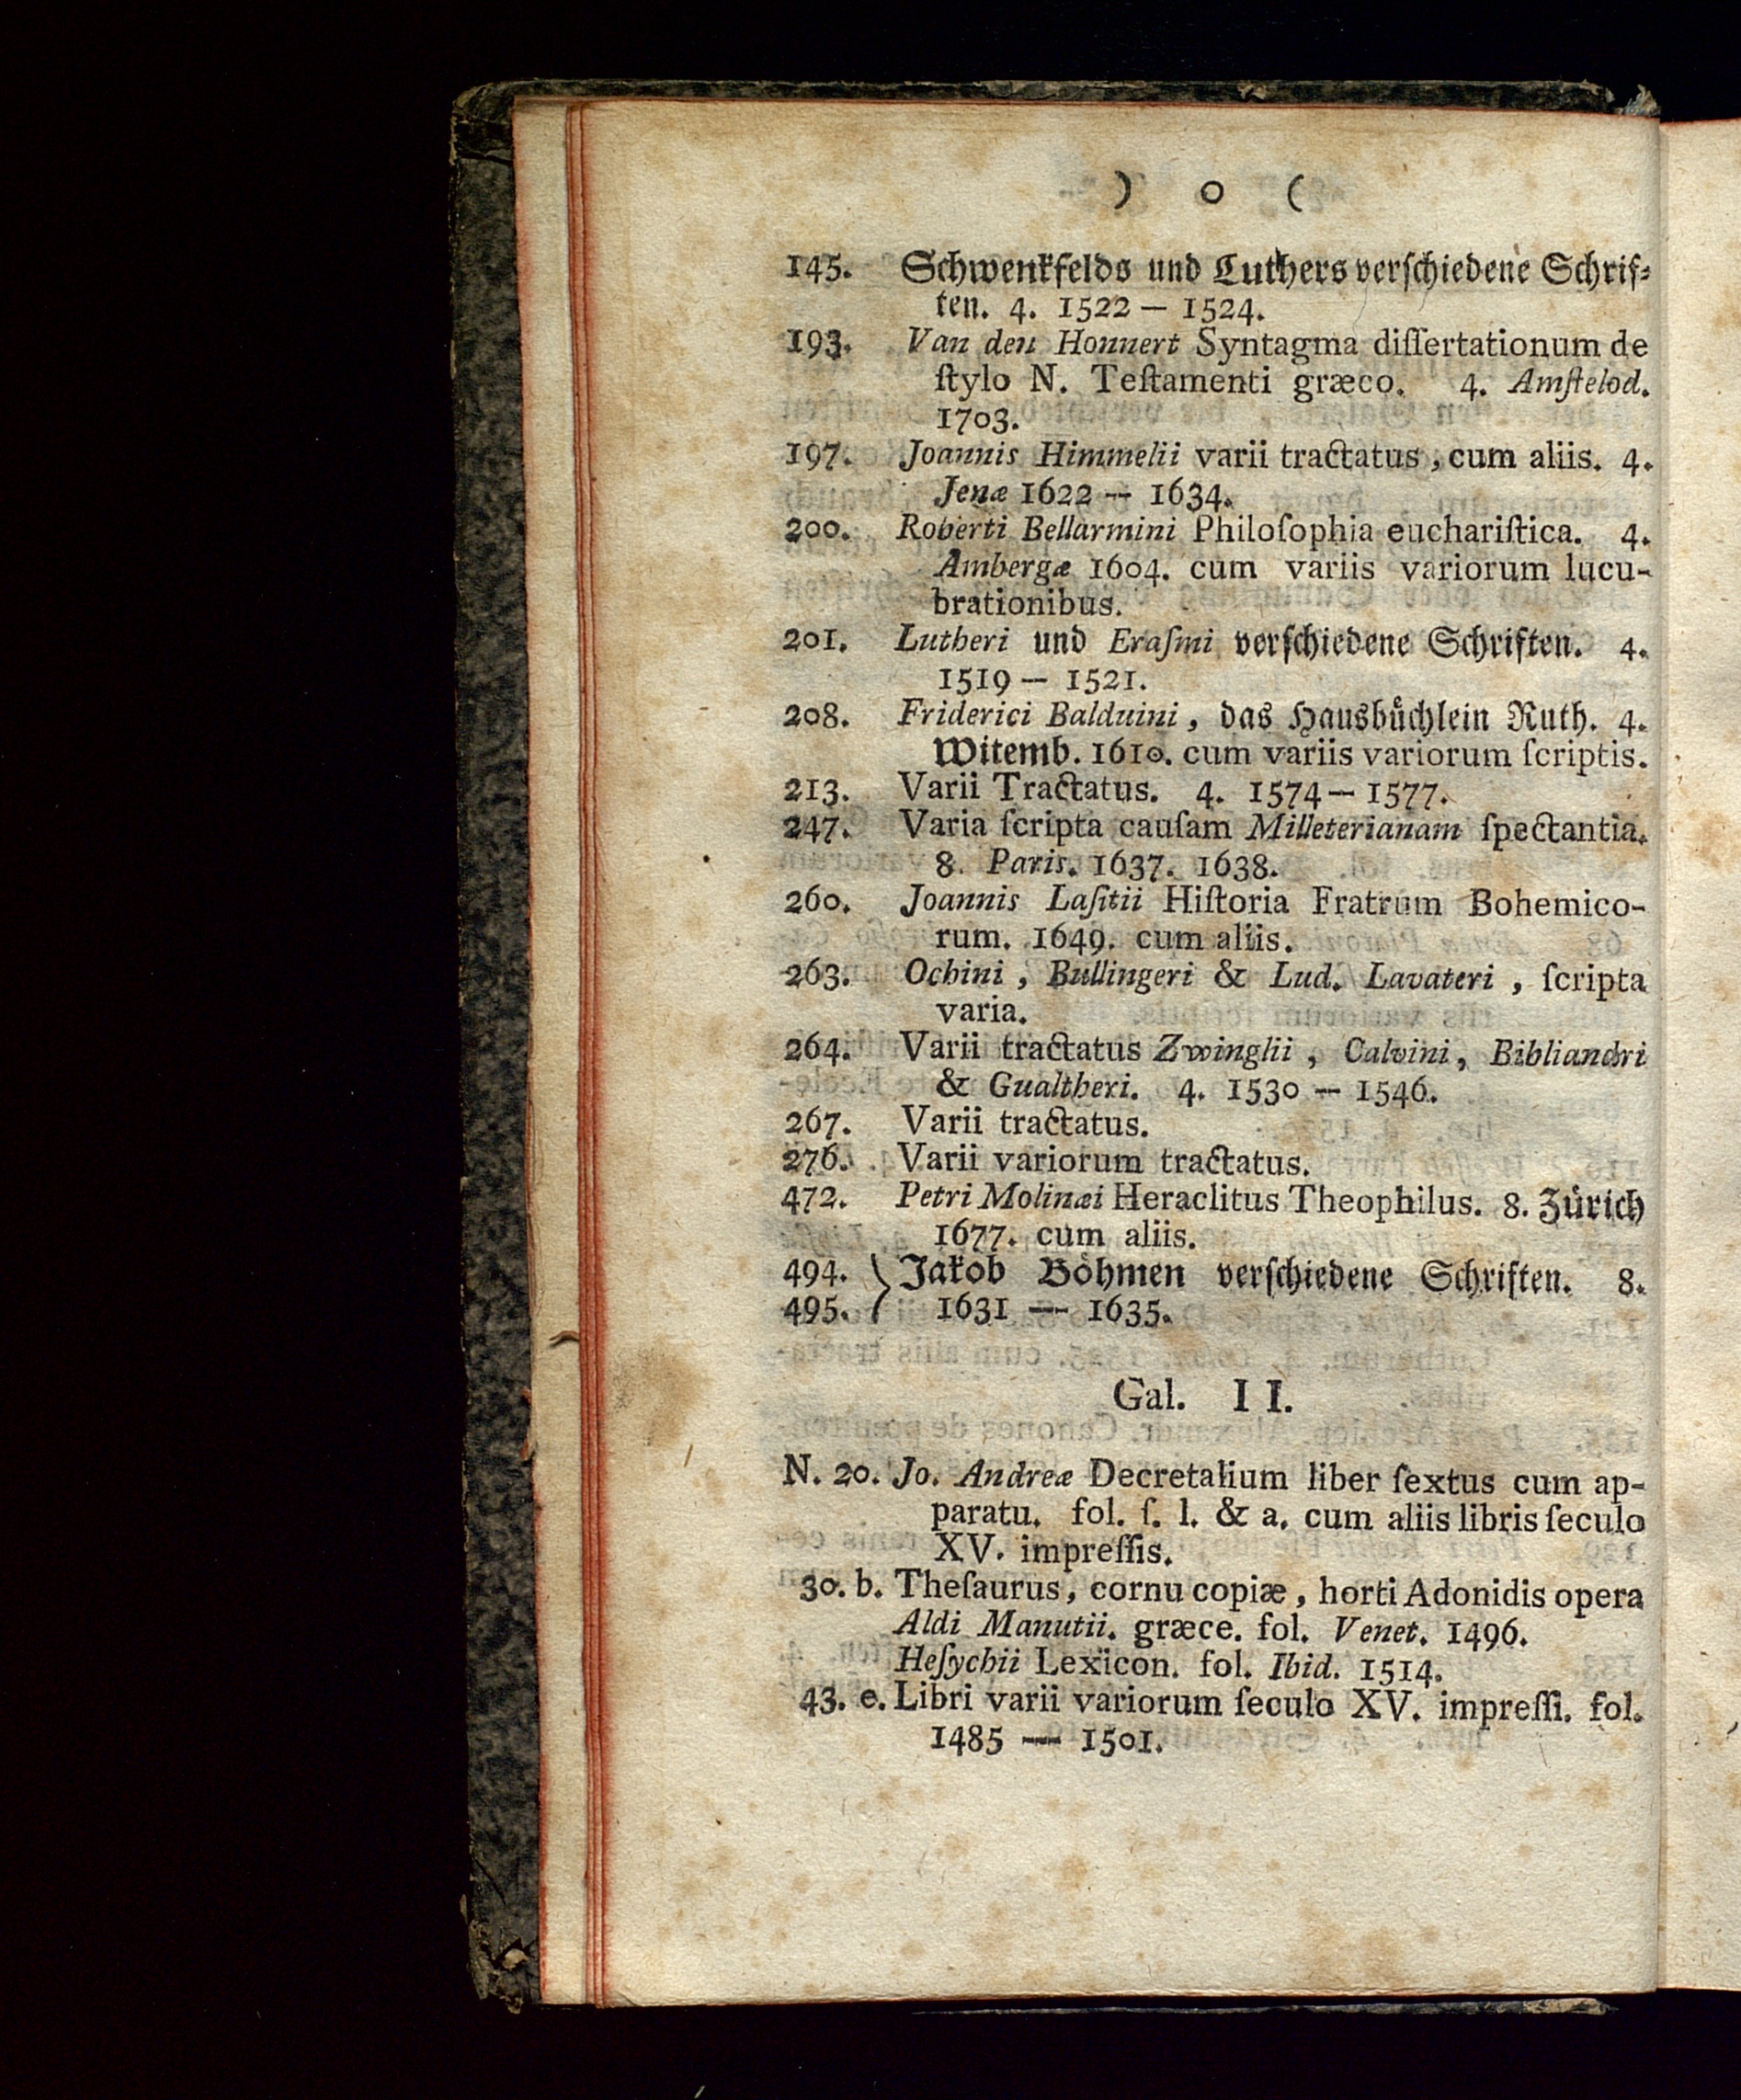 ) o (
145. Schwenkfelds und Luthers verſchiedene Schrif⸗
ten. 4. 1522 — 1524.
193. Van den Honnert Syntagma diſſertationum de
ſtylo N. Teſtamenti græco. 4. Amſtelod.
1703.
197. Joannis Himmelii varii tractatus, cum aliis. 4.
Jenæ 1622 — 1634.
200. Roberti Bellarmini Philoſophia euchariſtica. 4.
Ambergæ 1604. cum variis variorum lucu-
brationibus.
201. Lutheri und Eraſmi verſchiedene Schriften. 4.
1519 — 1521.
208. Friderici Balduini, das Hausbuͤchlein Ruth. 4.
Witemb. 1610. cum variis variorum ſcriptis.
213. Varii Tractatus. 4. 1574 — 1577.
247. Varia ſcripta cauſam Milleterianam ſpectantia.
8. Paris. 1637. 1638.
260. Joannis Laſitii Hiſtoria Fratrum Bohemico-
rum. 1649. cum aliis.
263. Ochini, Bullingeri & Lud. Lavateri, ſcripta
varia.
264. Varii tractatus Zwinglii, Calvini, Bibliandri
& Gualtheri. 4. 1530 — 1546.
267. Varii tractatus.
276. Varii variorum tractatus.
472. Petri Molinæi Heraclitus Theophilus. 8. Zuͤrich
1677. cum aliis.
494. } Jakob Boͤhmen verſchiedene Schriften. 8.
495. } 1631 — 1635.
Gal. II.
N. 20. Jo. Andreæ Decretalium liber ſextus cum ap-
paratu. fol. ſ. l. & a. cum aliis libris ſeculo
XV. impreſſis.
30. b. Theſaurus, cornu copiæ, horti Adonidis opera
Aldi Manutii. græce. fol. Venet. 1496.
Heſychii Lexicon. fol. Ibid. 1514.
43. e. Libri varii variorum ſeculo XV. impreſſi. fol.
1485 — 1501.